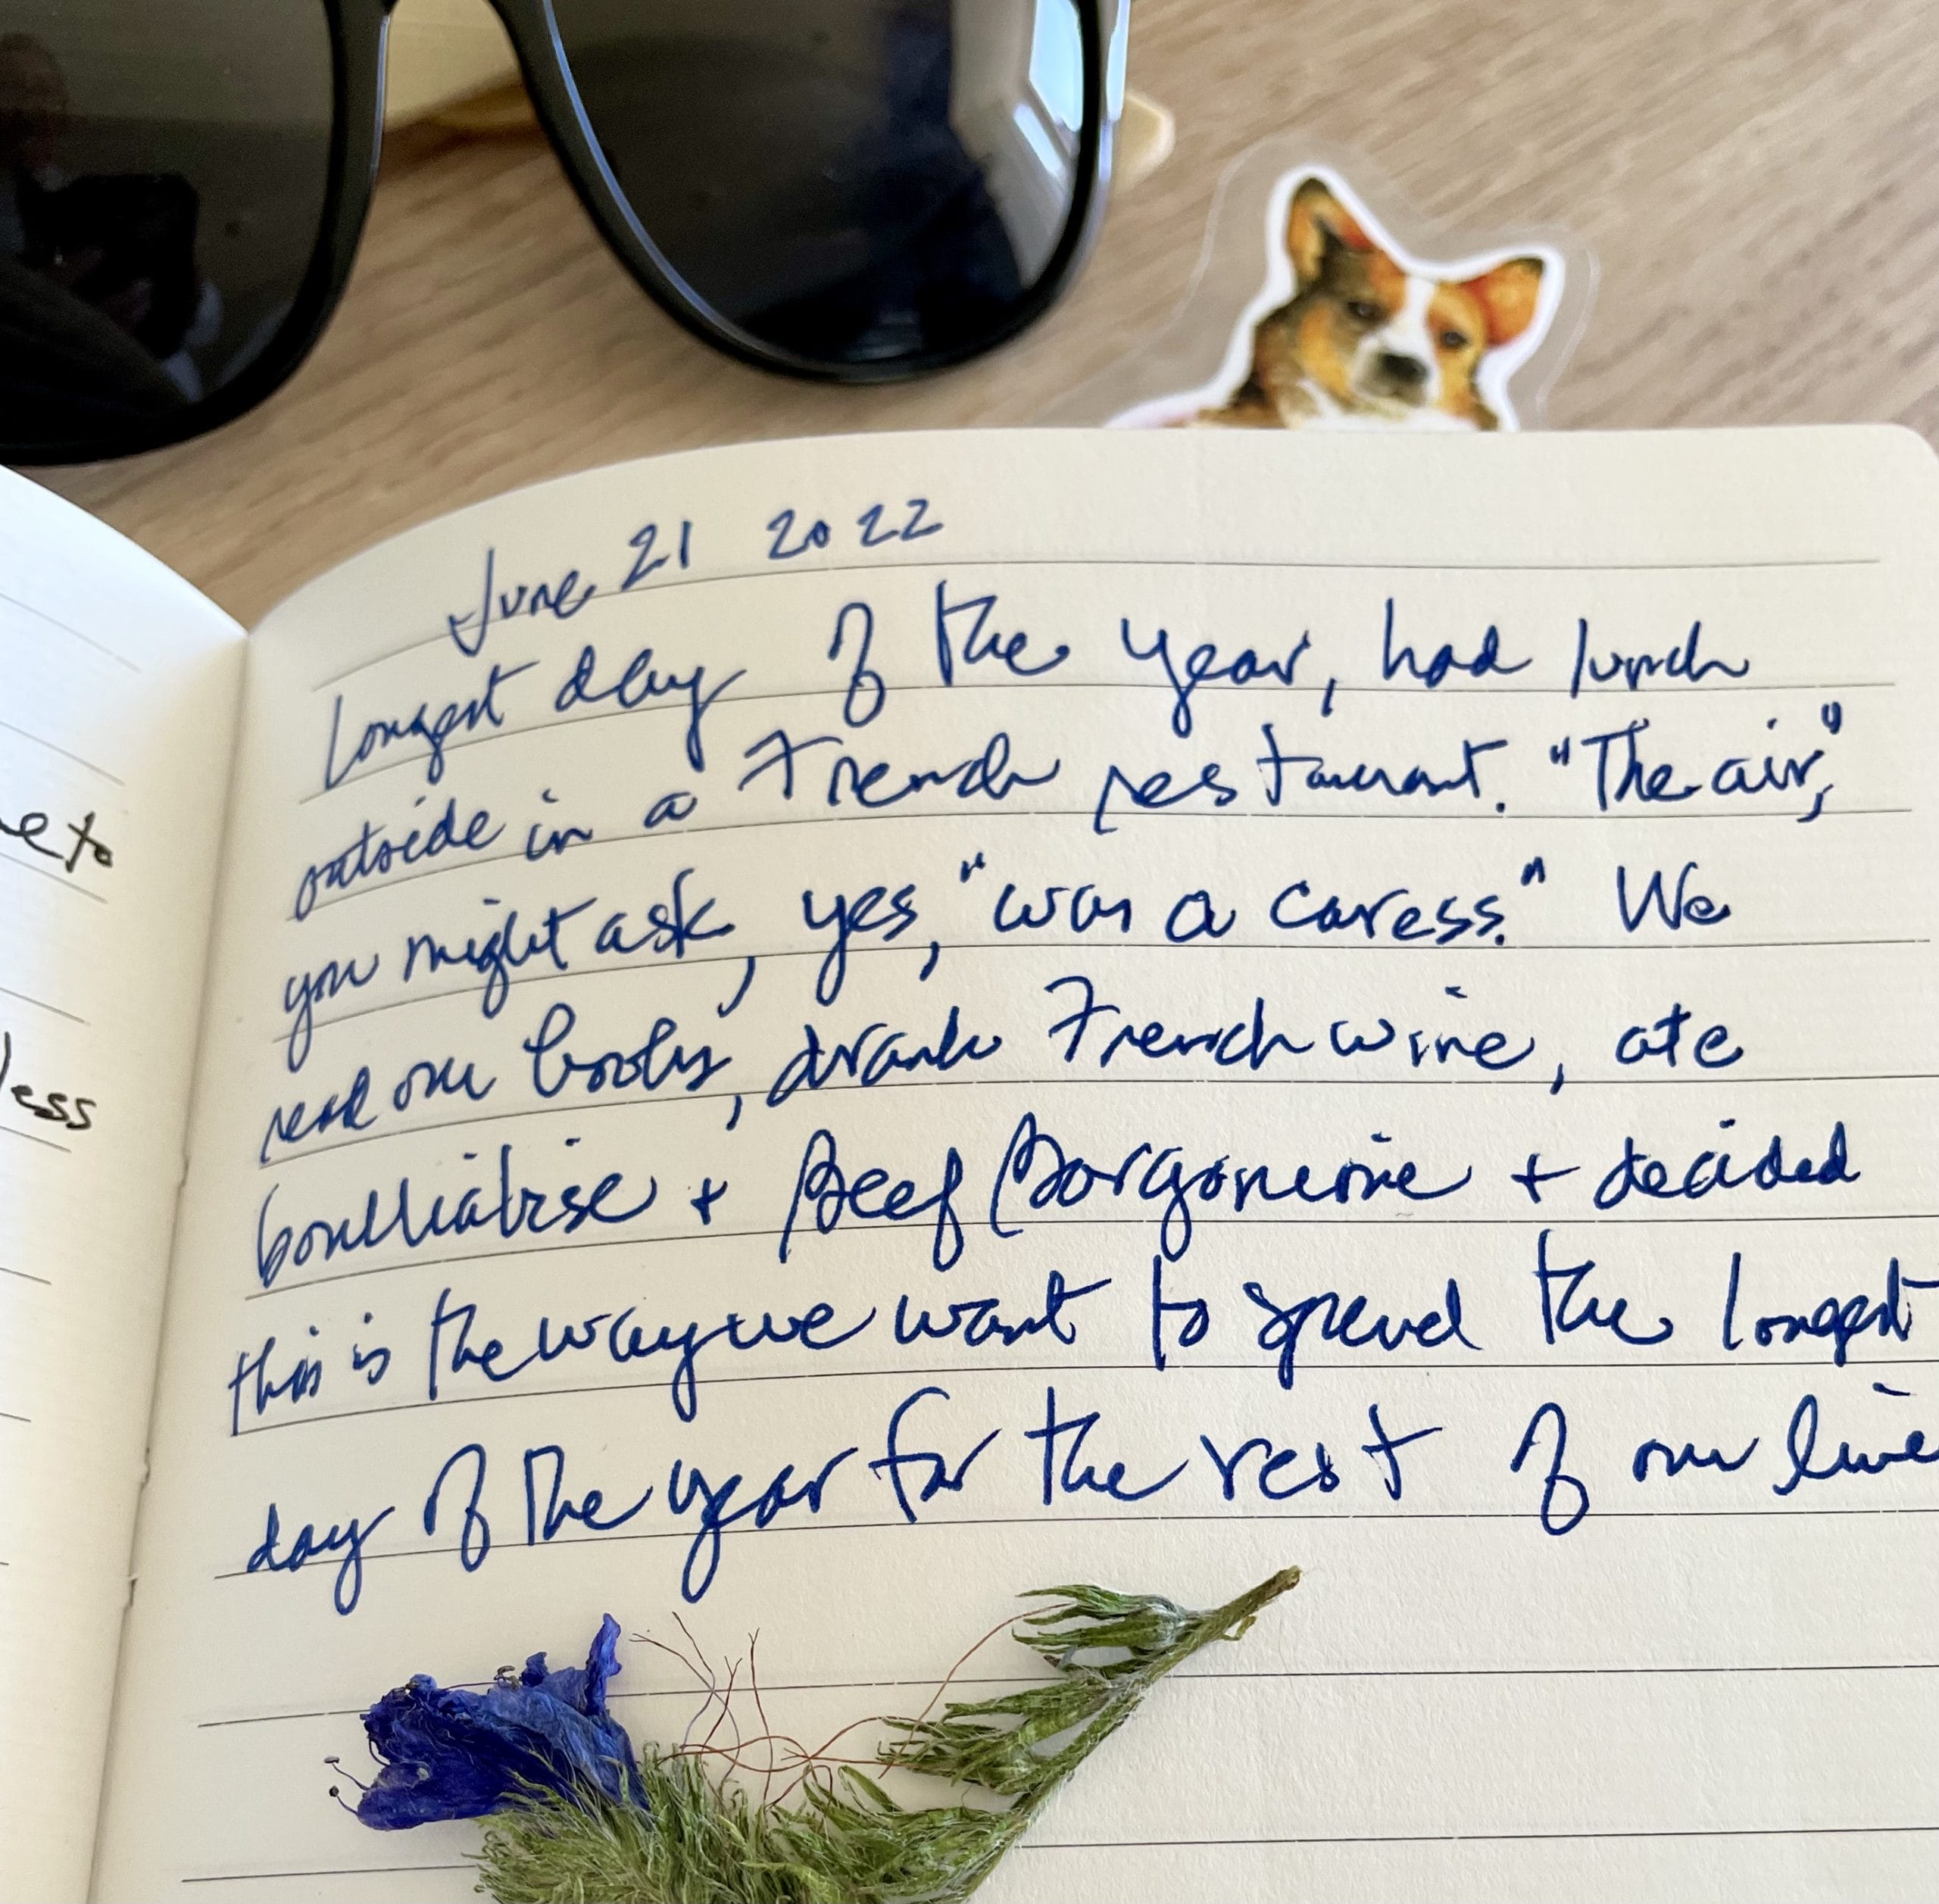 e to
less
June 21 2022
Longest day of the year, had lunch
outside in a French restaurant. "The air,"
you might ask, yes, "was a caress." We
read our books, drank French wine, ate
bouilliabise + Beef Borgoneone + decided
this is the way we want to spend the longest
day of the year for the rest of our live